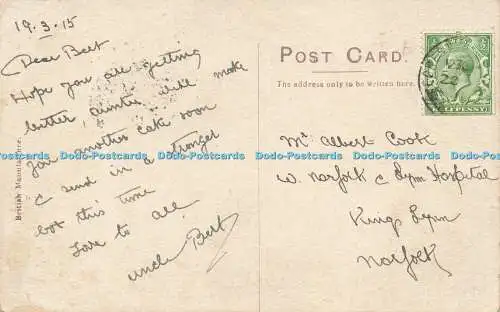 19.3.15
Dear Bert
Hope you are getting
better auntie will make
you another cake soon
& send in a stronger
box this time
Love to all
uncle Bert
British Manufacture.
POST CARD.
The address only to be written here.
Mr Albert Cook
W. Norfolk & Lynn Hospital
Kings Lynn
Norfolk
Dodo-Postcards Dodo-Postcards Dodo-Postcards Dodo-Postcards Dodo-Postcards